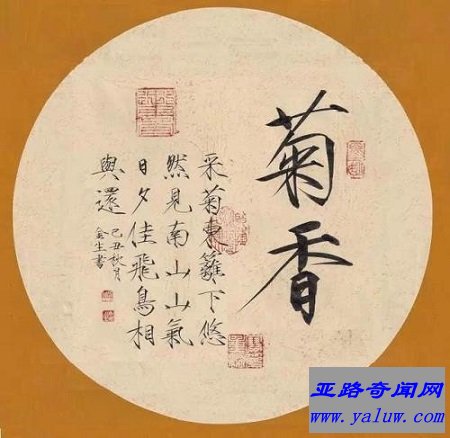 菊香
采菊東籬下悠
然見南山山氣
日夕佳飛鳥相
與還
己丑秋月
金生書
亚路奇闻网
www.yaluw.com